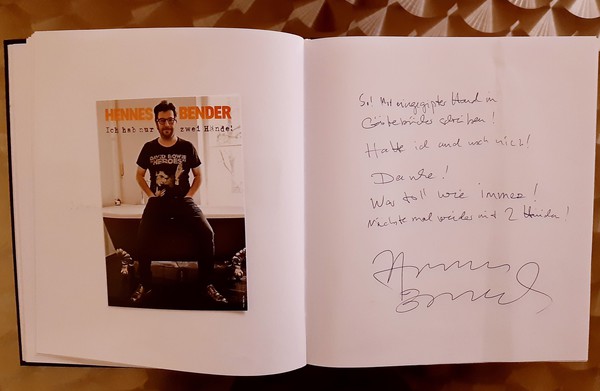 HENNES BENDER
Ich hab nur zwei Hände!
DAVID BOWIE
"HEROES"
So! Mit eingegipster Hand in
Gästebücher schreiben!
Hatte ich auch noch nicht!
Danke!
War toll wie immer!
Nächste mal wieder mit 2 Händen!
Hennes
Bender